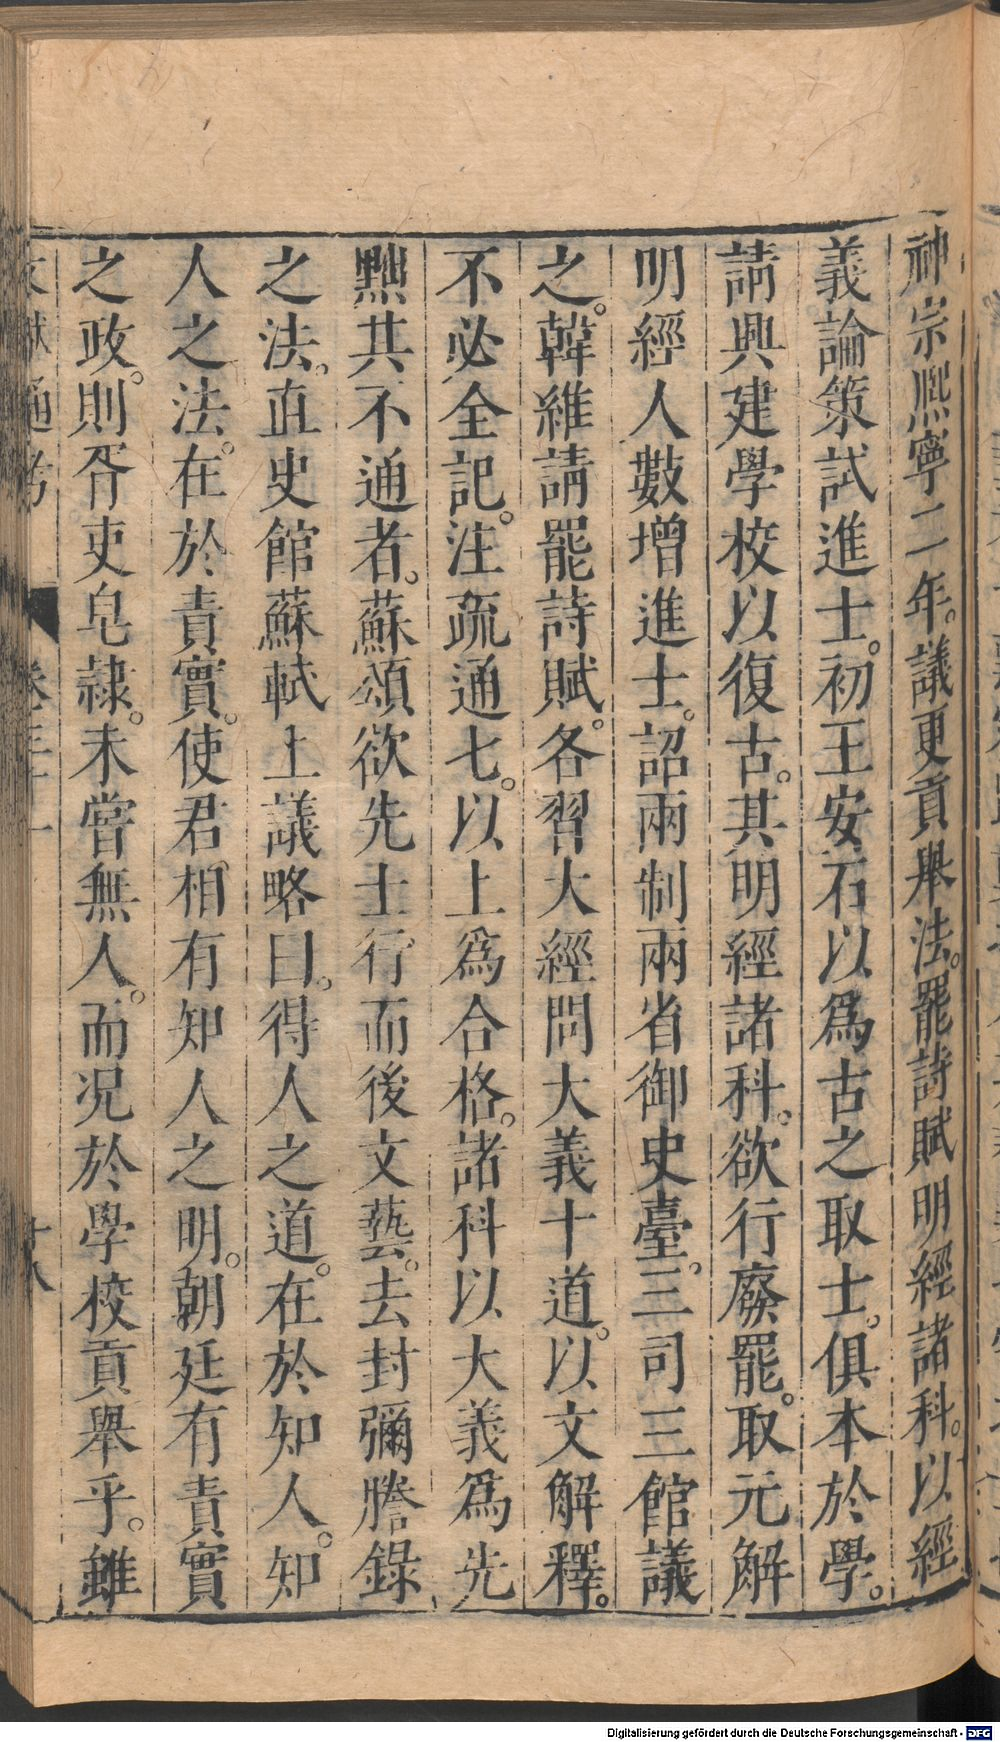 神宗熙寧二年。議更貢舉法。罷詩賦明經諸科。以經
義論策試進士。初王安石以爲古之取士。俱本於學。
請興建學校以復古。其明經諸科。欲行廢罷。取元解
明經人數增進士。詔兩制兩省御史臺。三司三館議
之。韓維請罷詩賦。各習大經問大義十道。以文解釋。
不必全記。注疏通七。以上爲合格。諸科以大義爲先
黜其不通者。蘇頌欲先士行而後文藝。去封彌謄錄
之法。直史館蘇軾上議略曰。得人之道。在於知人。知
人之法。在於責實。使君相有知人之明。朝廷有責實
之政。則胥吏皂隸。未嘗無人。而况於學校貢舉乎。雖
文獻通考 卷三十一 十八
Digitalisierung gefördert durch die Deutsche Forschungsgemeinschaft - DFG